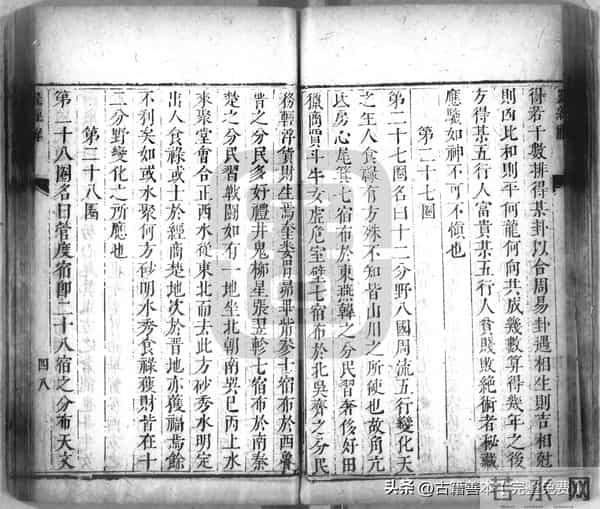 得若干數排得某卦以合周易卦遇相生則吉相尅
則凶比和則平何龍何向共成幾數算得幾年之後
方得某五行人富貴某五行人貧賤敗絕術者秘藏
應驗如神不可不慎也
第二十七圖
第二十七圖名曰十二分野八國周流五行變化天
之生人食祿有方殊不知皆山川之所使也故角亢
氐房心尾箕七宿布於東燕韓之分民習奢侈好田
獵商賈斗牛女虛危室壁七宿布於北吳齊之分民
務輕浮貨財生焉奎婁胃昴畢觜參七宿布於西魯
晉之分民多好禮井鬼柳星張翌軫七宿布於南秦
楚之分民習戰鬪如有一地坐北朝南巽巳丙上水
來聚堂會合正西水從東北而去此方砂秀水明定
出人食祿或士於經商楚地次於晉地亦獲福焉餘
不利矣如或水聚何方砂明水秀食祿獲財皆在十
二分野變化之所應也
第二十八圖
第二十八圖名曰管度宿即二十八宿之分布天文
四八
头条 @古籍善本